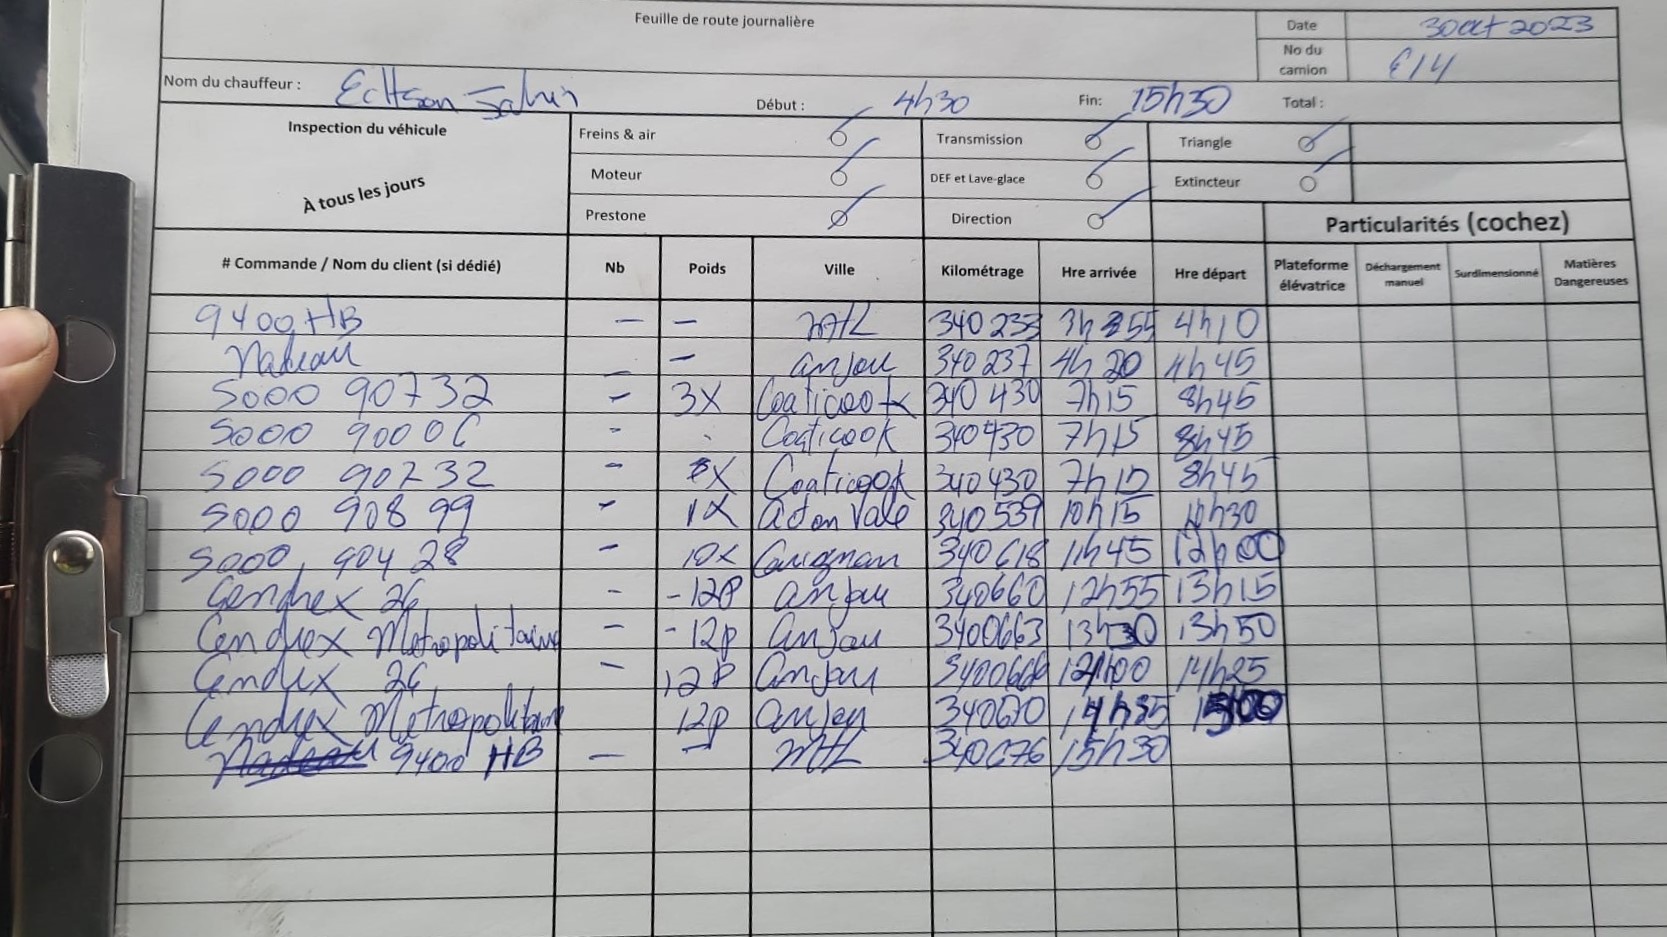 Feuille de route journalière
Date 30 oct 2023
No du camion E14
Nom du chauffeur : Début : 4h30 Fin: 15h30 Total :
Inspection du véhicule
À tous les jours
Freins & air Transmission Triangle
Moteur DEF et Lave-glace Extincteur
Prestone Direction
Particularités (cochez)
# Commande / Nom du client (si dédié) Nb Poids Ville Kilométrage Hre arrivée Hre départ Plateforme élévatrice Déchargement manuel Surdimensionné Matières Dangereuses
9400 HB — — mtl 340 233 4h10
Nadeau — anjou 340 237 4h20 4h45
5000 90732 – 3X Coaticook 340 430 7h15 8h45
5000 - Coaticook 340430 7h15 8h45
5000 – Coaticook 340430 8h45
5000 90899 – 1X acton Vale 340539 10h15
5000 90428 – 10x Carignan 340618 11h45 12h00
Cendrex – - 12p anjou 340660 12h55 13h15
Cendrex Metropolitaine – - 12p anjou 3400663 13h30 13h50
Cendrex – 12p anjou 14h25
Cendrex Metropolitaine 12p anjou 340670
9400 HB — – mtl 340676 15h30